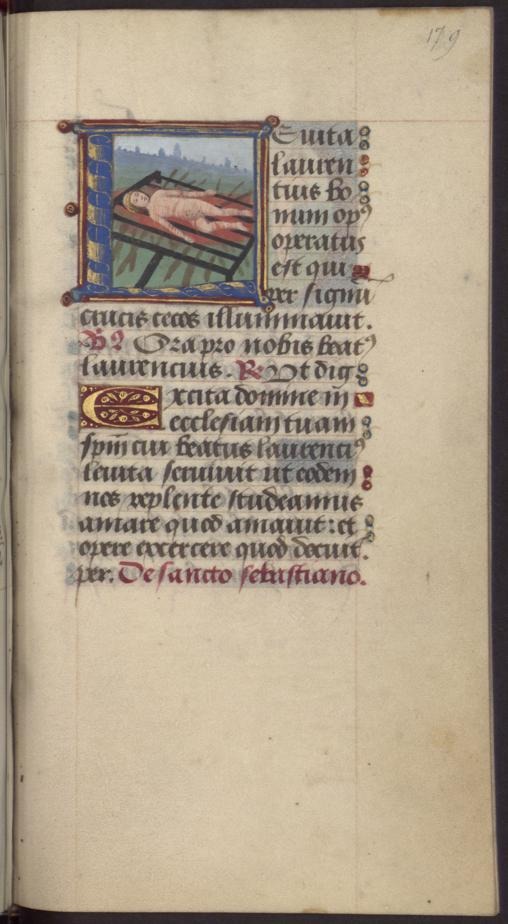 179
Euita
lauren
tius bo
num opꝰ
operatus
est qui
per signū
crucis cecos illuminauit.
Ora pro nobis beatꝰ
laurencius. R Ut dig
Excita domine in
ecclesiam tuam
spm̄ cui beatus laurenciꝰ
leuita seruiuit ut eodem
nos replente studeamus
amare quod amauit: et
opere exercere quod docuit.
per. De sancto sebastiano.